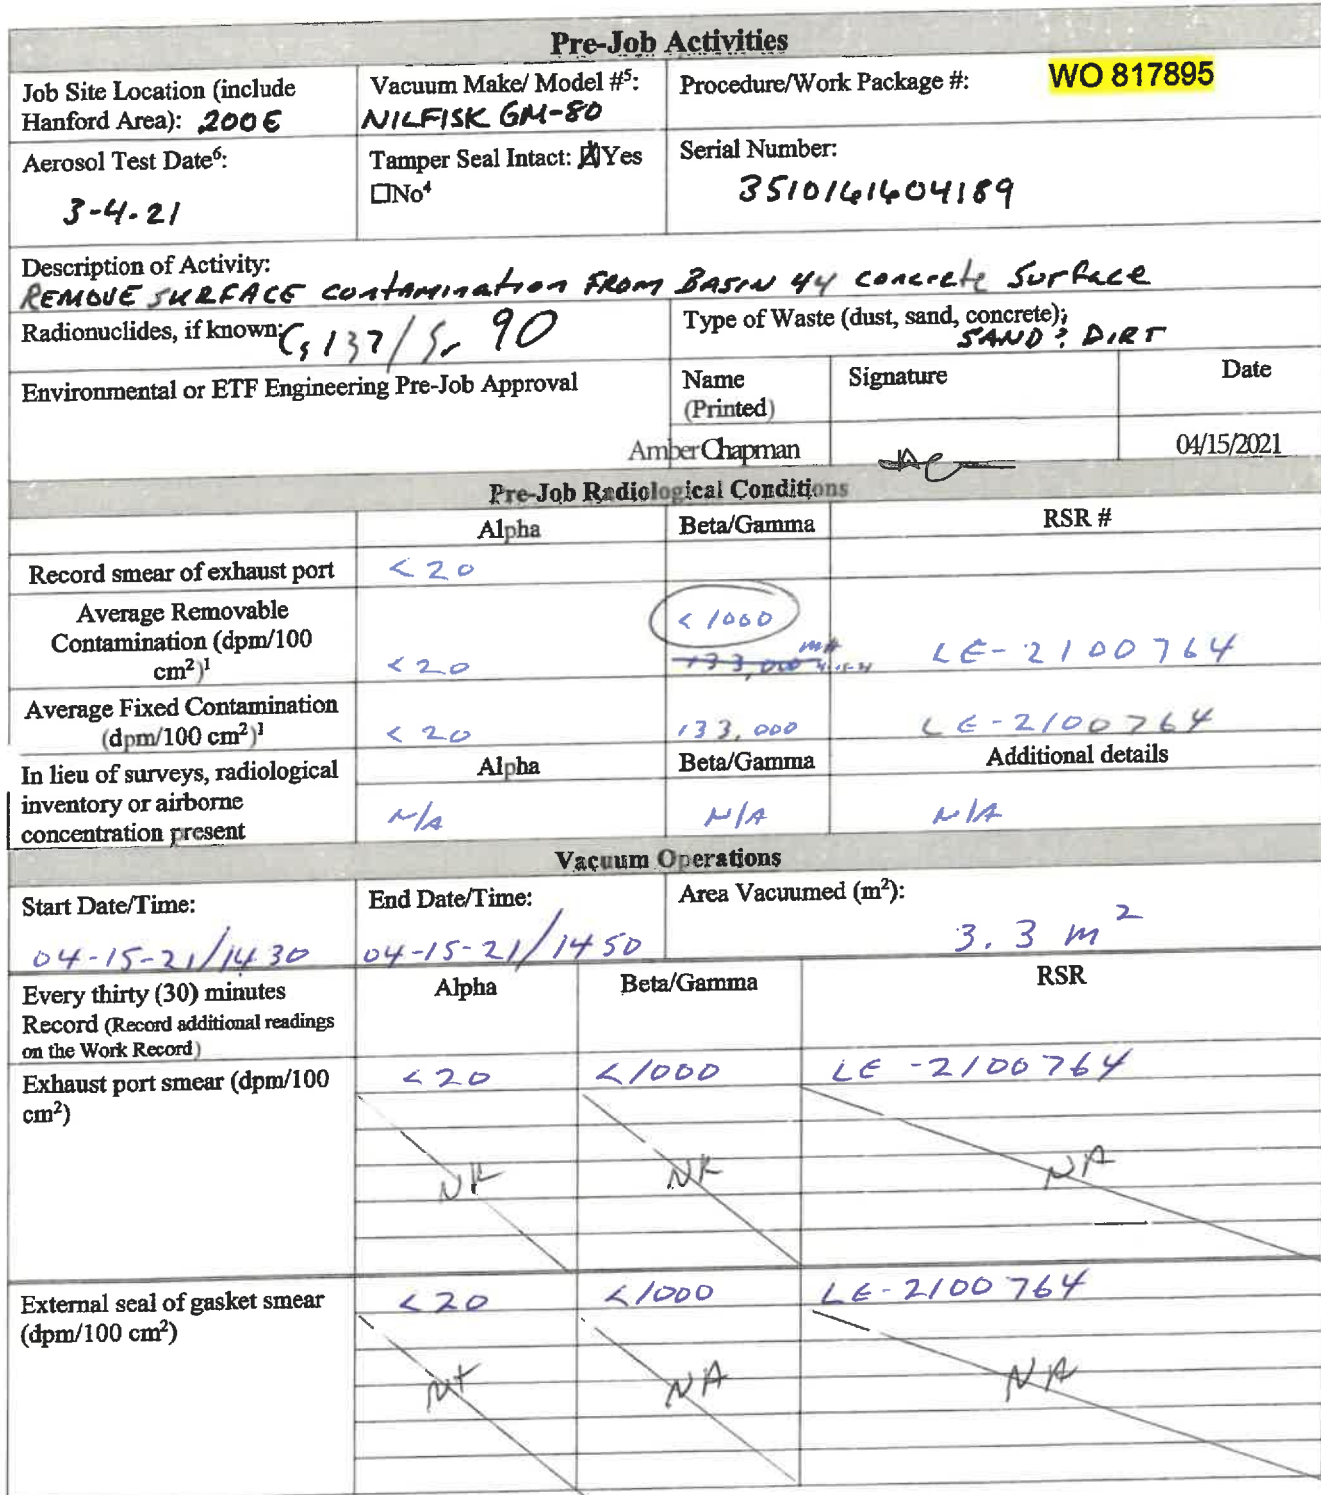 Pre-Job Activities
Job Site Location (include
Hanford Area): 200E
Vacuum Make/ Model #5:
NILFISK GM-80
Procedure/Work Package #: WO 817895
Aerosol Test Date6:
3-4-21
Tamper Seal Intact: ☒Yes
☐No4
Serial Number:
3510161604189
Description of Activity:
REMOVE SURFACE contamination FROM BASIN 44 concrete Surface
Radionuclides, if known: Cs 137/Sr 90
Type of Waste (dust, sand, concrete):
SAND & DIRT
Environmental or ETF Engineering Pre-Job Approval
Name
(Printed)
Signature
Date
Amber Chapman
04/15/2021
Pre-Job Radiological Conditions
Alpha
Beta/Gamma
RSR #
Record smear of exhaust port
<20
Average Removable
Contamination (dpm/100
cm2)1
<20
<1000
133,000
4-15-21
LE-2100764
Average Fixed Contamination
(dpm/100 cm2)1
<20
133,000
LE-2100764
In lieu of surveys, radiological
inventory or airborne
concentration present
Alpha
Beta/Gamma
Additional details
N/A
N/A
N/A
Vacuum Operations
Start Date/Time:
04-15-21/1430
End Date/Time:
04-15-21/1450
Area Vacuumed (m2):
3.3 m2
Every thirty (30) minutes
Record (Record additional readings
on the Work Record)
Alpha
Beta/Gamma
RSR
Exhaust port smear (dpm/100
cm2)
<20
<1000
LE-2100764
NA
NA
NA
External seal of gasket smear
(dpm/100 cm2)
<20
<1000
LE-2100764
NA
NA
NA